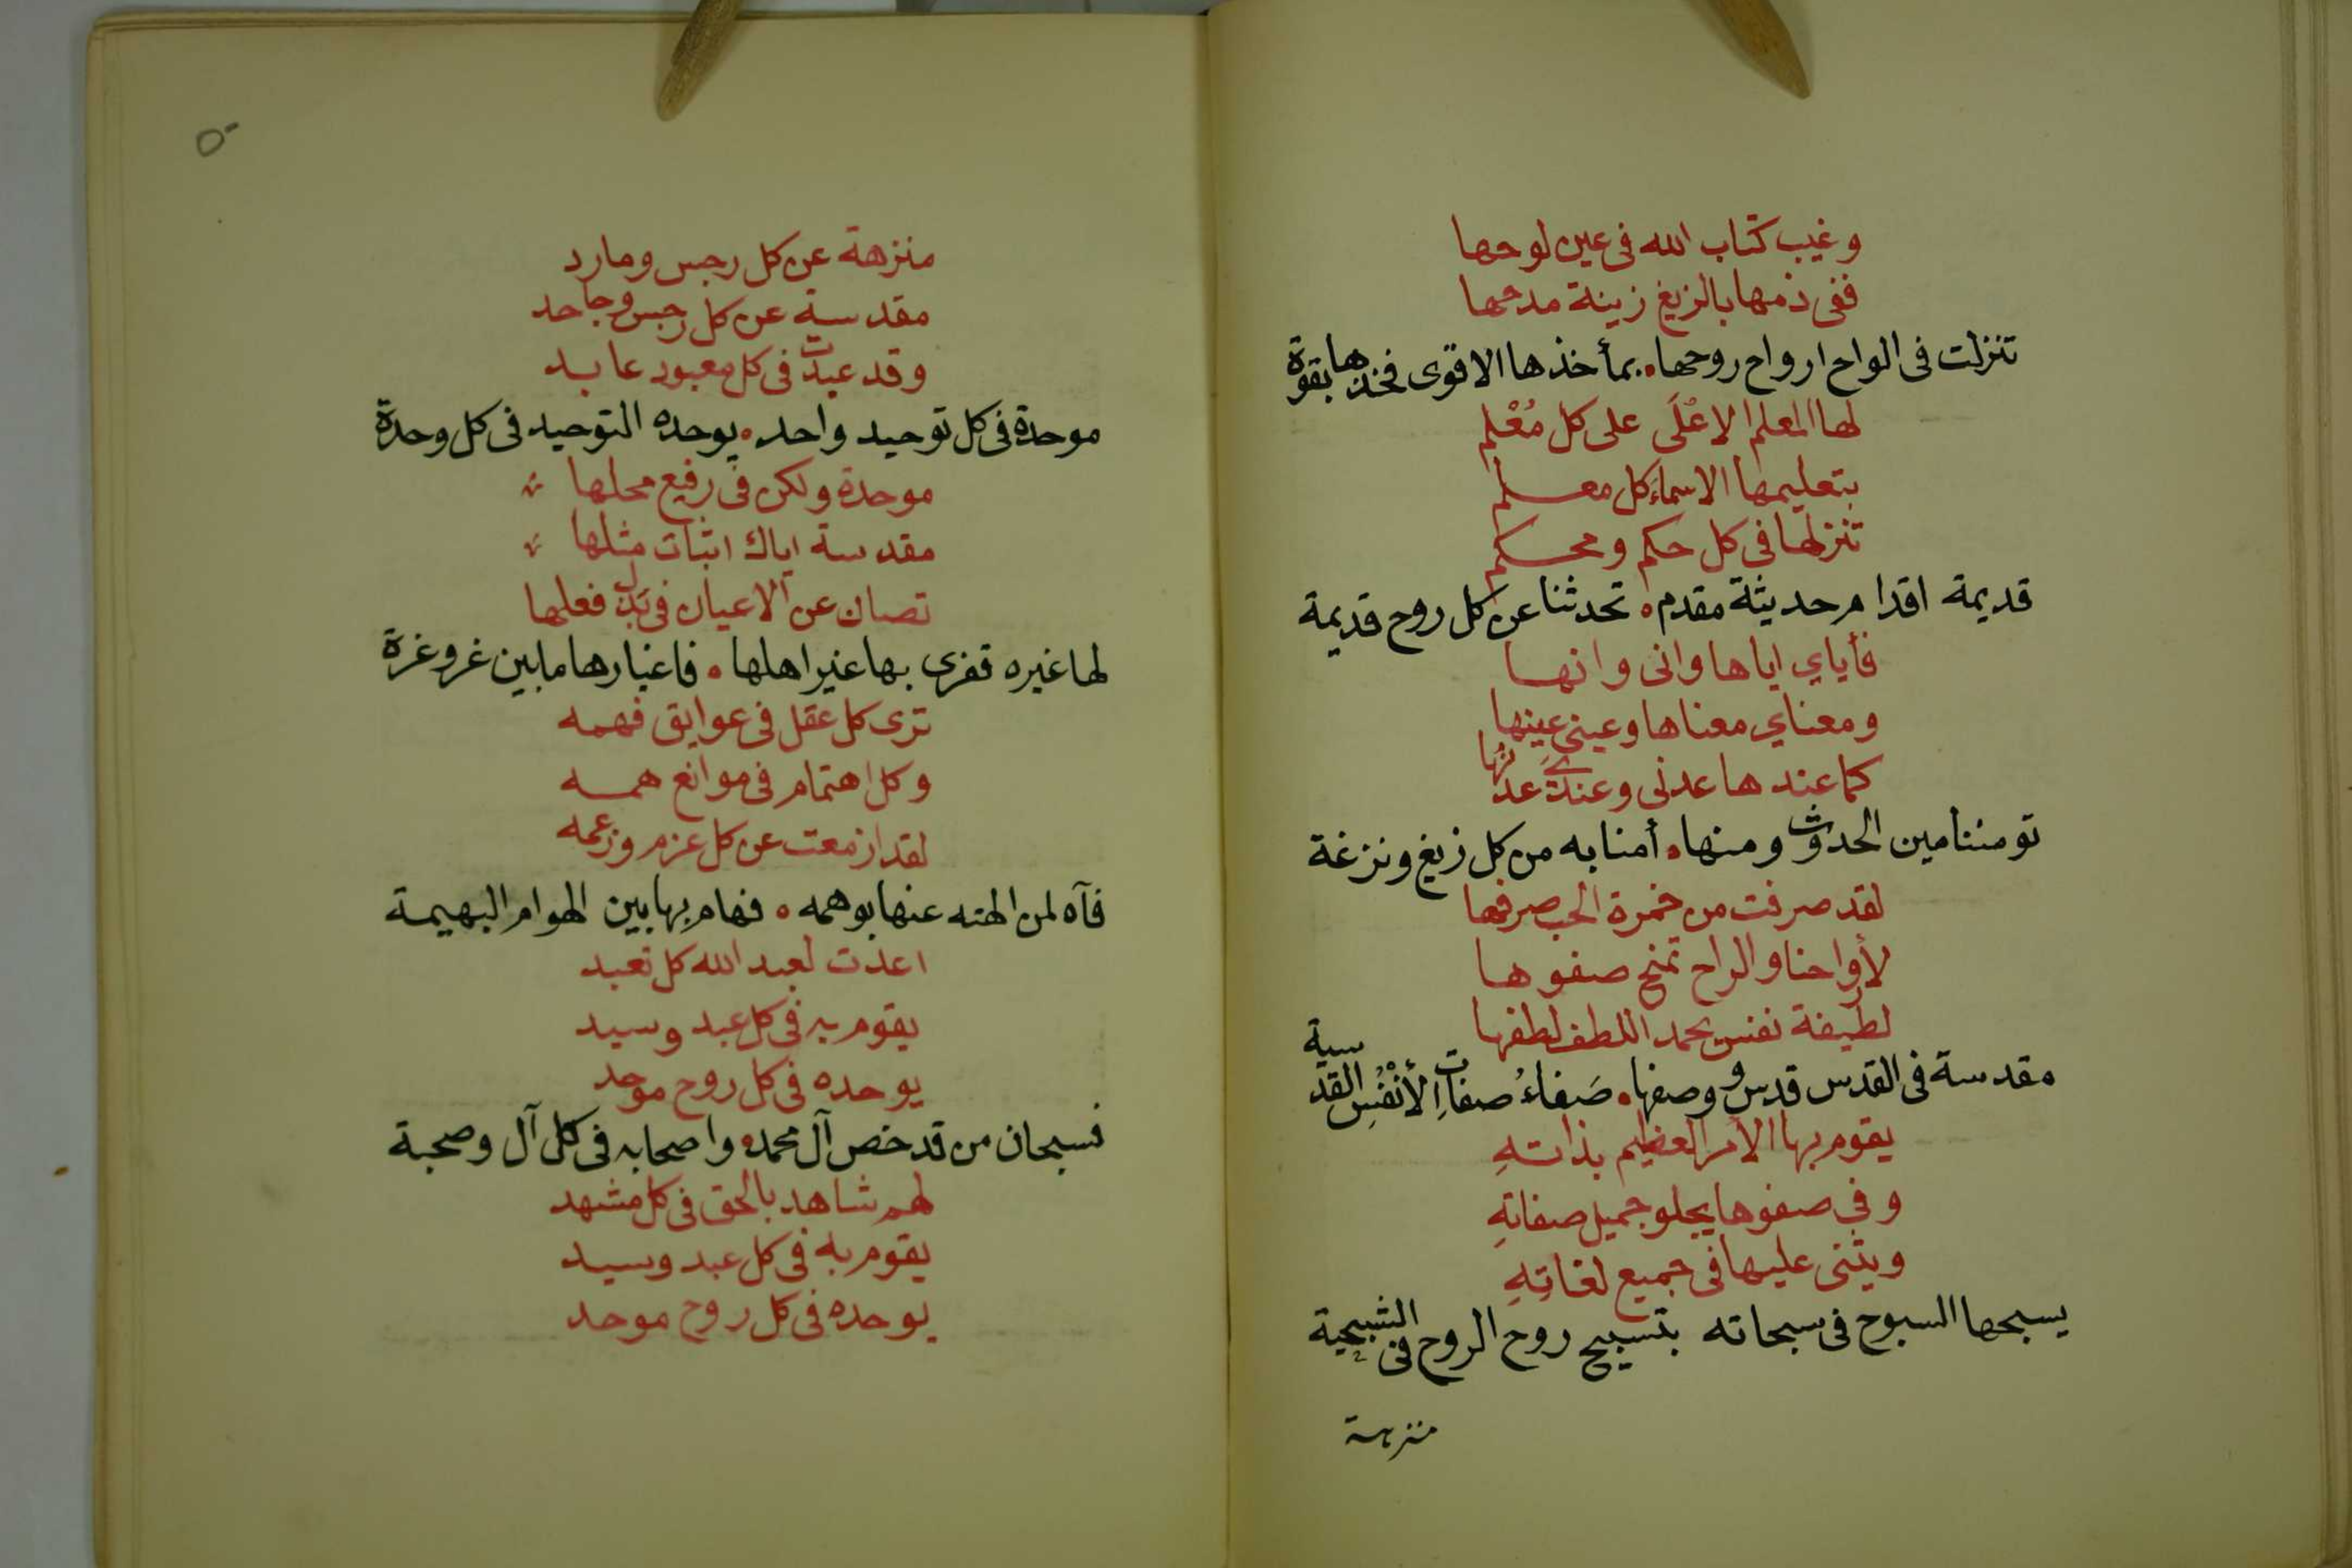 وغيب كتاب الله فى عين لوحها
ففى ذمها بالزيغ زينة مدحها
تنزلت فى الواح ارواح روحها • بمأخذها الاقوى فخذها بقوة
لها المعلم الاعْلَى على كل مُعْلم
بتعليمها الاسماء كل معلم
تنزلها فى كل حكم ومحكم
قديمة اقدام حديثة مقدم • تحدثنا عن كل روح قديمة
فأياي اياها وانى وانها
ومعناي معناها وعينى عينها
كما عندها عدنى وعندي عدنها
تومننا مين الحدوث ومنها • أمنا به من كل زيغ ونزغة
لقد صرفت من خمرة الحب صرفها
لأواحنا والراح تمنح صفوها
لطيفة نفس يحمد اللطف لطفها
مقدسة فى القدس قدس ووصفها • صَفاءُ صفاتِ الأنْفُسِ القدسية
يقوم بها الأمر العظيم بذاتهِ
وفى صفوها يجلو جميل صفاتهِ
ويثنى عليها فى جميع لغاتِهِ
يسبحها السبوح فى سبحاته بتسبيح روح الروح فى الشبحية
منزهة
٥٠
منزهة عن كل رجس ومارد
مقدسة عن كل رجس وجاحد
وقد عبدت فى كل معبود عابد
موحدة فى كل توحيد واحد • يوحده التوحيد فى كل وحدة
موحدة ولكن فى رفيع محلها
مقدسة اياك اثبات مثلها
تصان عن الاعيان فى بذل فعلها
لها غيره تغرى بها غير اهلها • فاغيارها مابين غر وغرة
ترى كل عقل فى عوايق فهمه
وكل اهتمام فى موانع همه
لقد ازمعت عن كل عزم وزعمه
فآه لمن الهته عنها بوهمه • فهام بها بين الهوام البهيمة
اعدت لعبد الله كل تعبد
يقوم به فى كل عبد وسيد
يوحده فى كل روح موحد
فسبحان من قد خص آل محمد • واصحابه فى كل آل وصحبة
لهم شاهد بالحق فى كل مشهد
يقوم به فى كل عبد وسيد
يوحده فى كل روح موحد